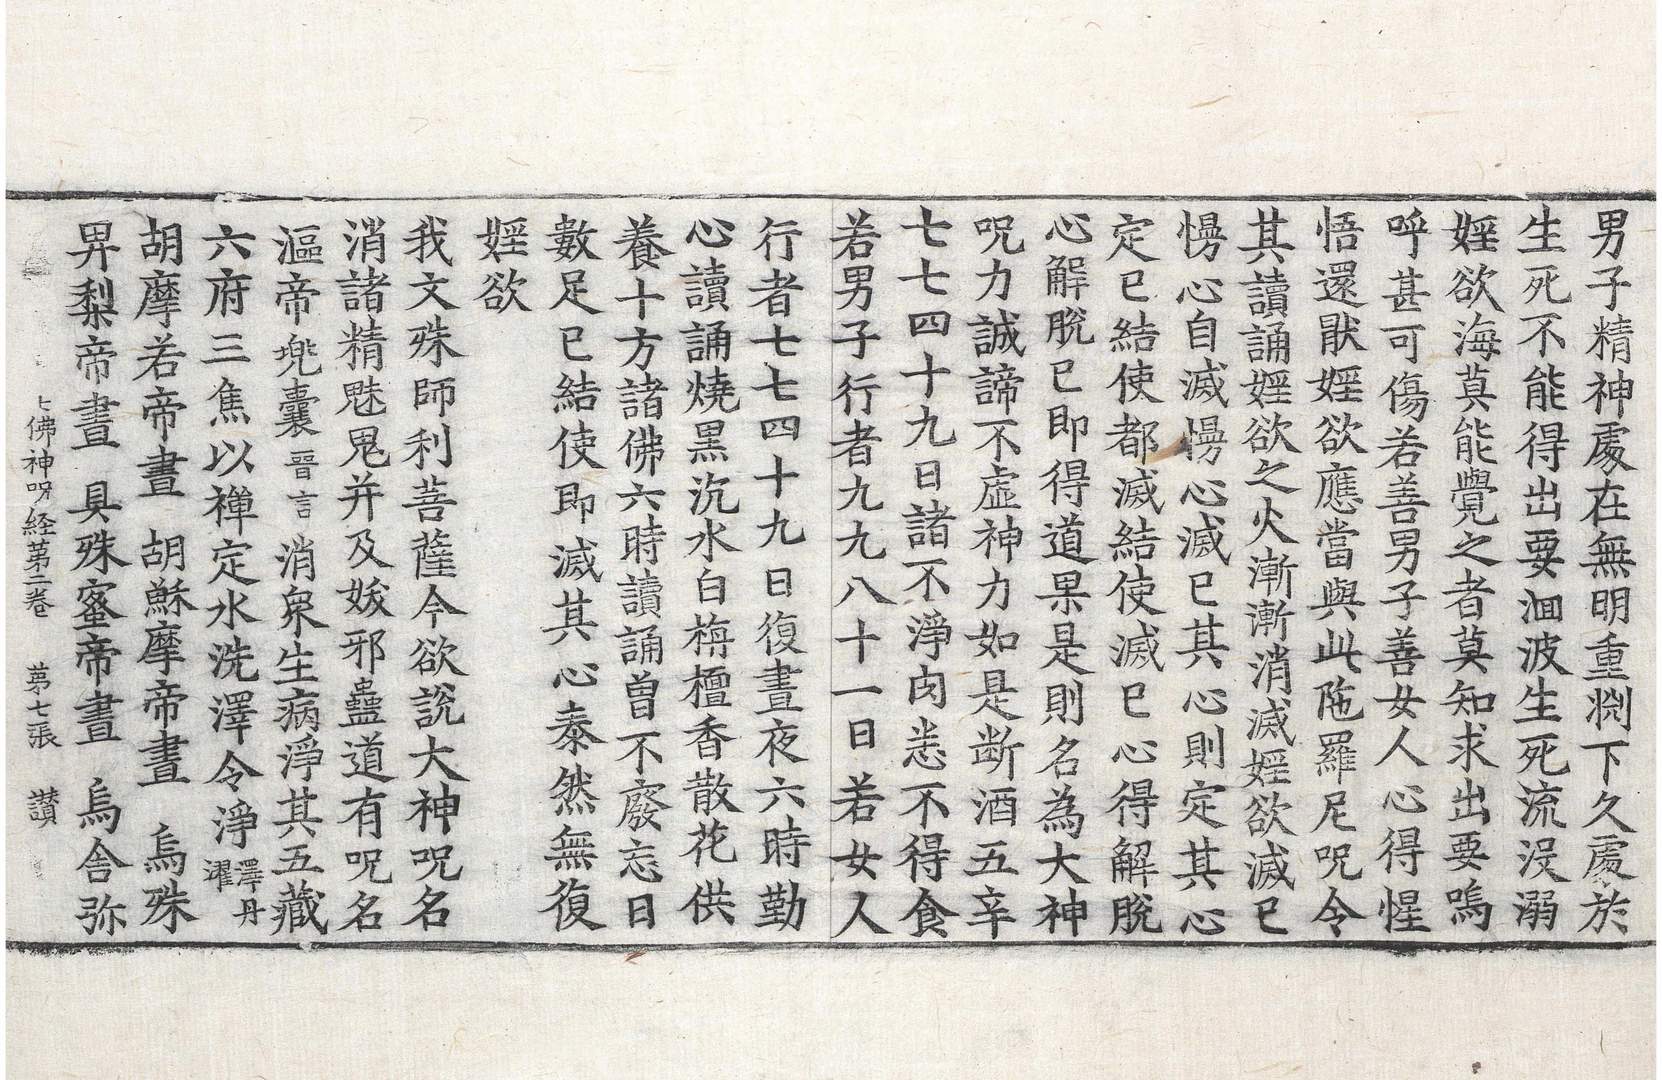 男子精神處在無明重淵下久處於
生死不能得出要洄波生死流没溺
婬欲海莫能覺之者莫知求出要嗚
呼甚可傷若善男子善女人心得惺
悟還猒婬欲應當與此陁羅尼呪令
其讀誦婬欲之火漸漸消滅婬欲滅已
慢心自滅慢心滅已其心則定其心
定已結使都滅結使滅已心得解脫
心解脫已即得道果是則名為大神
呪力誠諦不虛神力如是断酒五辛
七七四十九日諸不淨肉悉不得食
若男子行者九九八十一日若女人
行者七七四十九日復晝夜六時勤
心讀誦燒黑沉水白栴檀香散花供
養十方諸佛六時讀誦曾不廢忘日
數足已結使即滅其心泰然無復
婬欲
我文殊師利菩薩今欲說大神呪名
消諸精魅鬼并及妭邪蠱道有呪名
漚帝兠囊晉言消衆生病淨其五藏
六府三焦以禪定水洗澤令淨澤丹濯
胡摩若帝晝 胡穌摩帝晝 烏殊
畀梨帝晝 具殊蜜帝晝 烏舍弥
七佛神呪経第二卷 第七張 讃